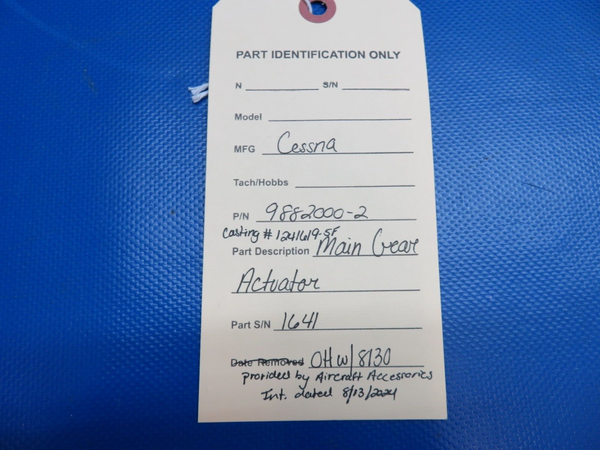 PART IDENTIFICATION ONLY
N S/N
Model
MFG Cessna
Tach/Hobbs
P/N 9882000-2
Casting # 1241619-5F
Part Description Main Gear
Actuator
Part S/N 1641
Date Removed OH w/ 8130
provided by Aircraft Accessories
Int. dated 8/13/2024